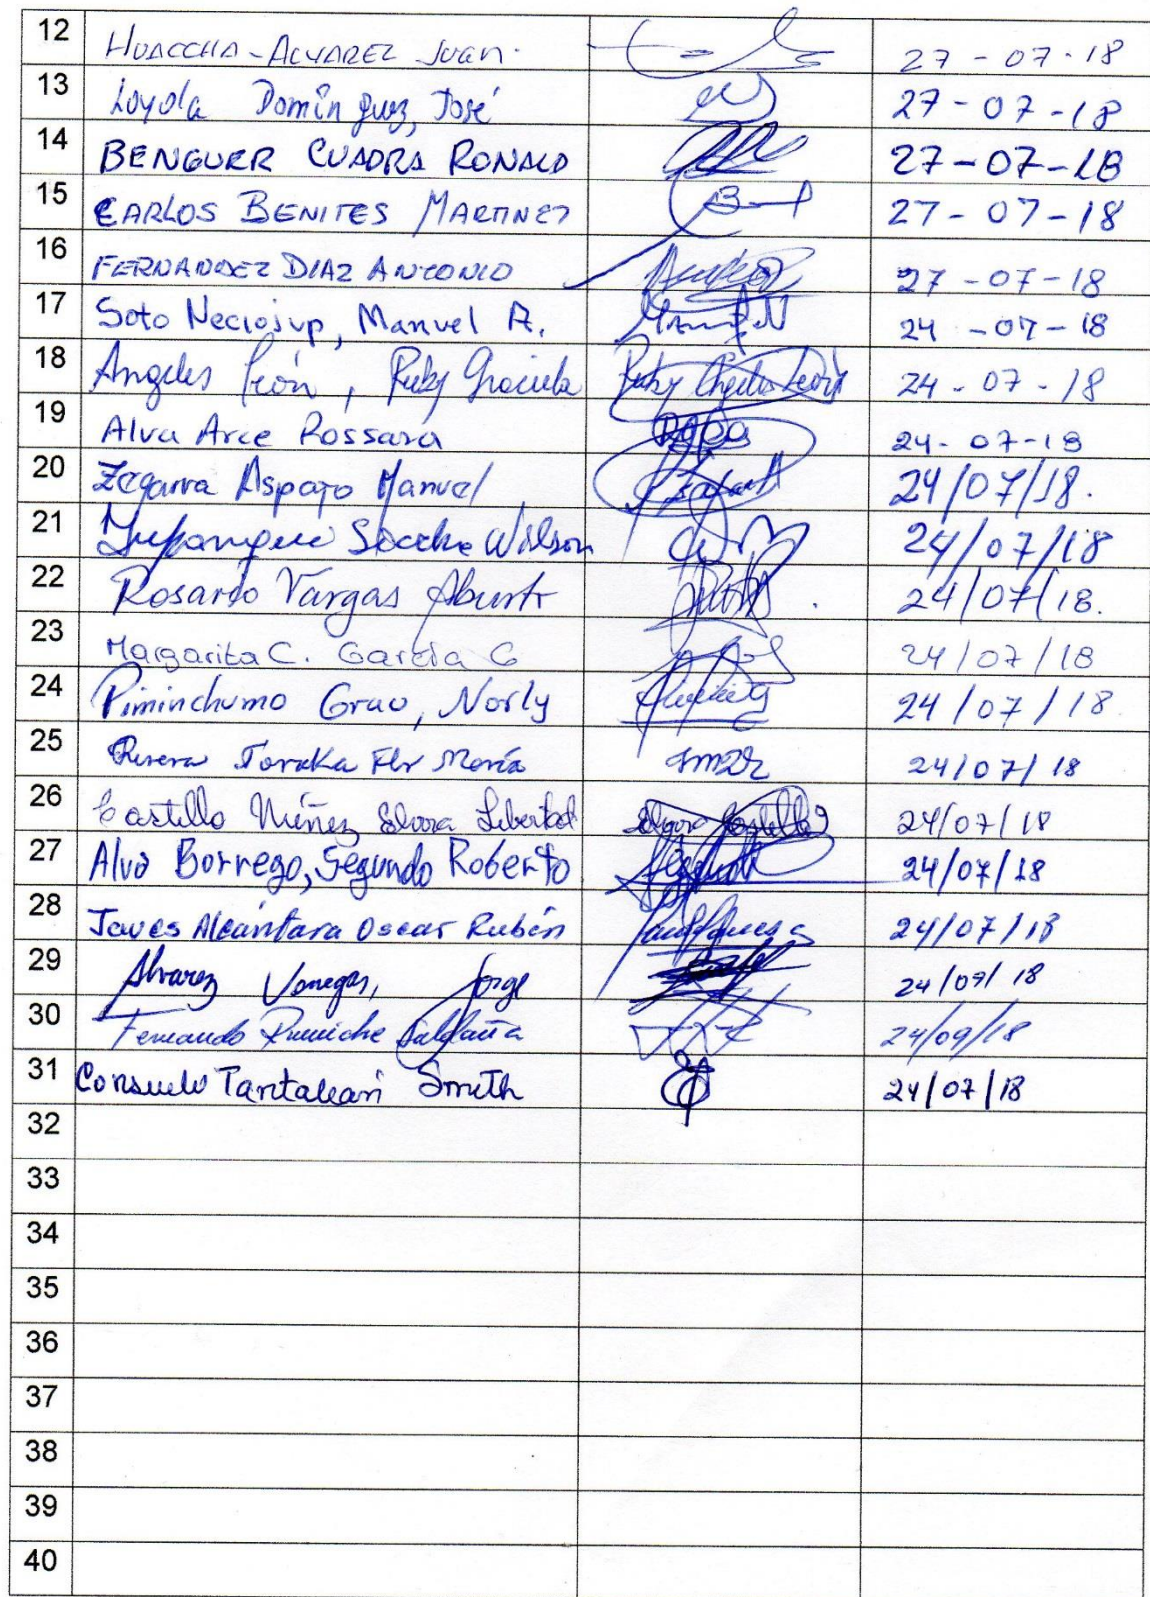 12 HUACCHA-ALVAREZ Juan. 27-07-18
13 Loyola Domínguez, José 27-07-18
14 BENGUER CUADRA RONALD 27-07-18
15 CARLOS BENITES MARTINEZ 27-07-18
16 FERNANDEZ DIAZ ANTONIO 27-07-18
17 Soto Neciosup, Manuel A. 24-07-18
18 Angeles León, Ruby Graciela 24-07-18
19 Alva Arce Rossana 24-07-18
20 Zegarra Manuel 24/07/18.
21 Wilson 24/07/18
22 Rosario Vargas 24/07/18.
23 Margarita C. García G 24/07/18
24 Piminchumo Grau, Norly 24/07/18.
25 Flor María 24/07/18
26 Castillo Núñez Libertad 24/07/18
27 Alva Borrego, Segundo Roberto 24/07/18
28 Alcántara Oscar Rubén 24/07/18
29 Alvarez Vanegas, Jorge 24/07/18
30 Fernando Saldaña 24/09/18
31 Consuelo Tantaleán Smith 24/07/18
32
33
34
35
36
37
38
39
40